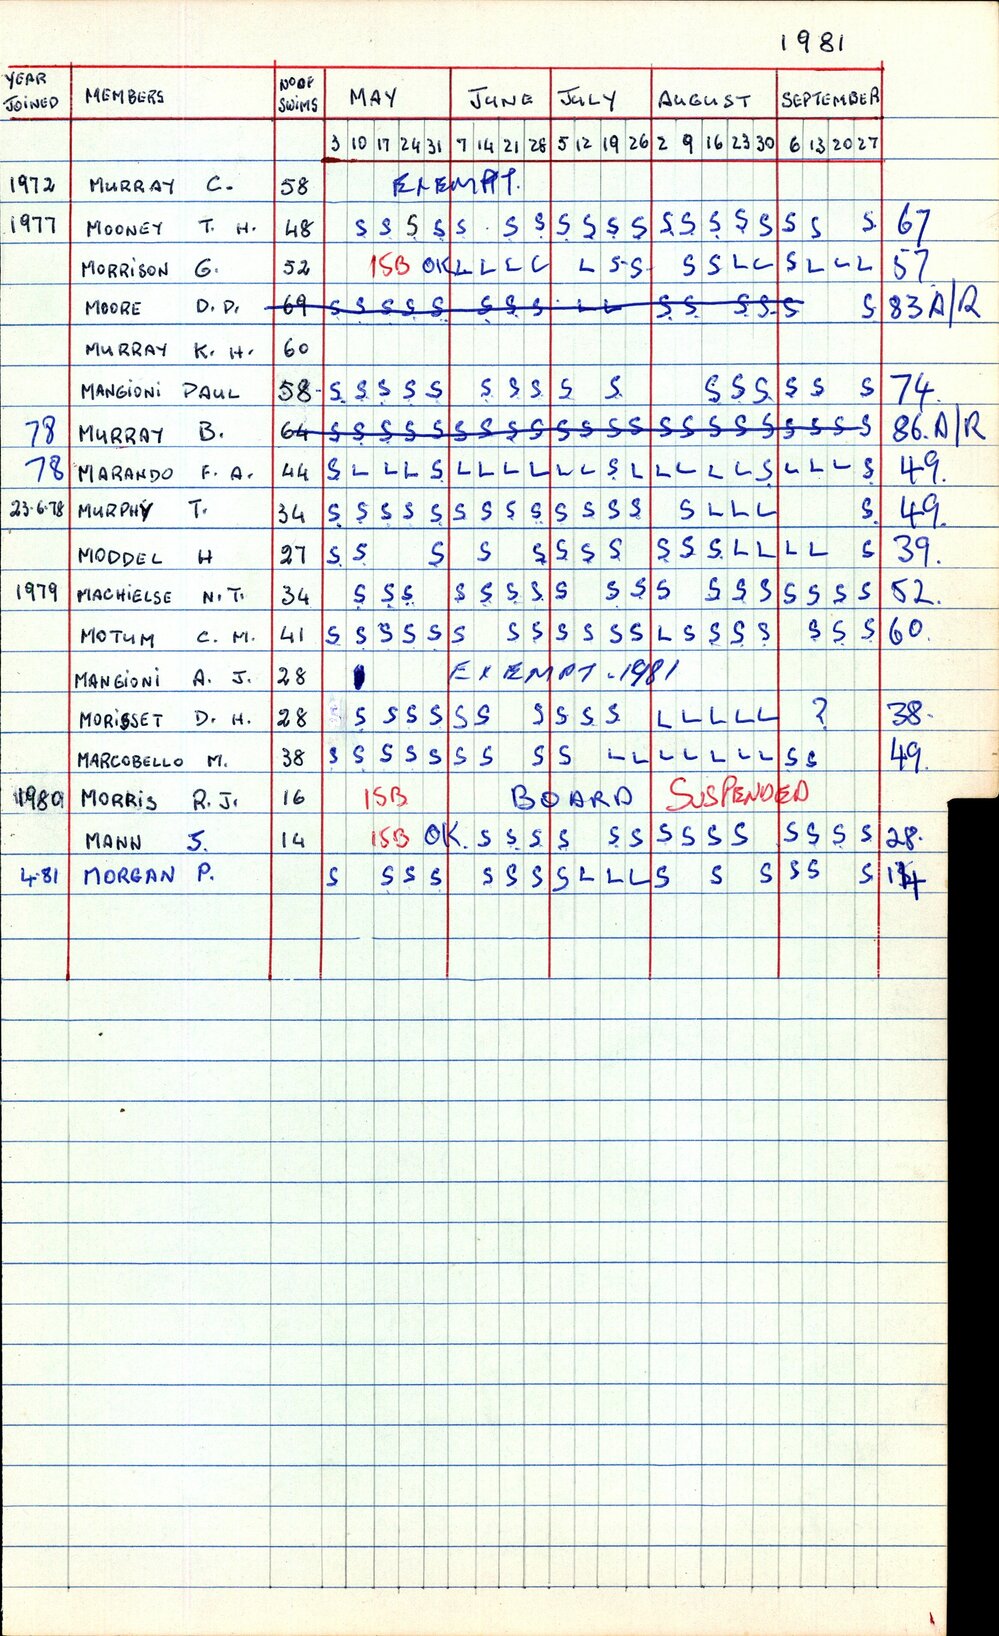 1981
YEAR JOINED MEMBERS NO OF SWIMS MAY JUNE JULY AUGUST SEPTEMBER
3 10 17 24 31 7 14 21 28 5 12 19 26 2 9 16 23 30 6 13 20 27
1972 MURRAY C. 58 EXEMPT.
1977 MOONEY T. H. 48 S S S S S S S S S S S S S S S S S S S 67
MORRISON G. 52 ISB OK L L L L L S S S S L L S L L L 57
MOORE D. D. 69 S S S S S S S S L L S S S S S S 83 A/R
MURRAY K. H. 60
MANGIONI PAUL 58 S S S S S S S S S S S S S S S S 74.
78 MURRAY B. 64 S S S S S S S S S S S S S S S S S S S S S S 86. A/R
78 MARANDO F. A. 44 S L L L S L L L L L L S L L L L L S L L L S 49.
23.6.78 MURPHY T. 34 S S S S S S S S S S S S S S L L L S 49.
MODDEL H 27 S S S S S S S S S S S L L L L S 39.
1979 MACHIELSE N.T. 34 S S S S S S S S S S S S S S S S S S S 52.
MOTUM C. M. 41 S S S S S S S S S S S S L S S S S S S S 60.
MANGIONI A. J. 28 EXEMPT - 1981
MORISSET D. H. 28 S S S S S S S S S S S L L L L L ? 38.
MARCOBELLO M. 38 S S S S S S S S S L L L L L L L S S 49.
1980 MORRIS R.J. 16 ISB BOARD SUSPENDED
MANN S. 14 ISB OK. S S S S S S S S S S S S S S 28.
4.81 MORGAN P. S S S S S S S S L L L S S S S S S 14